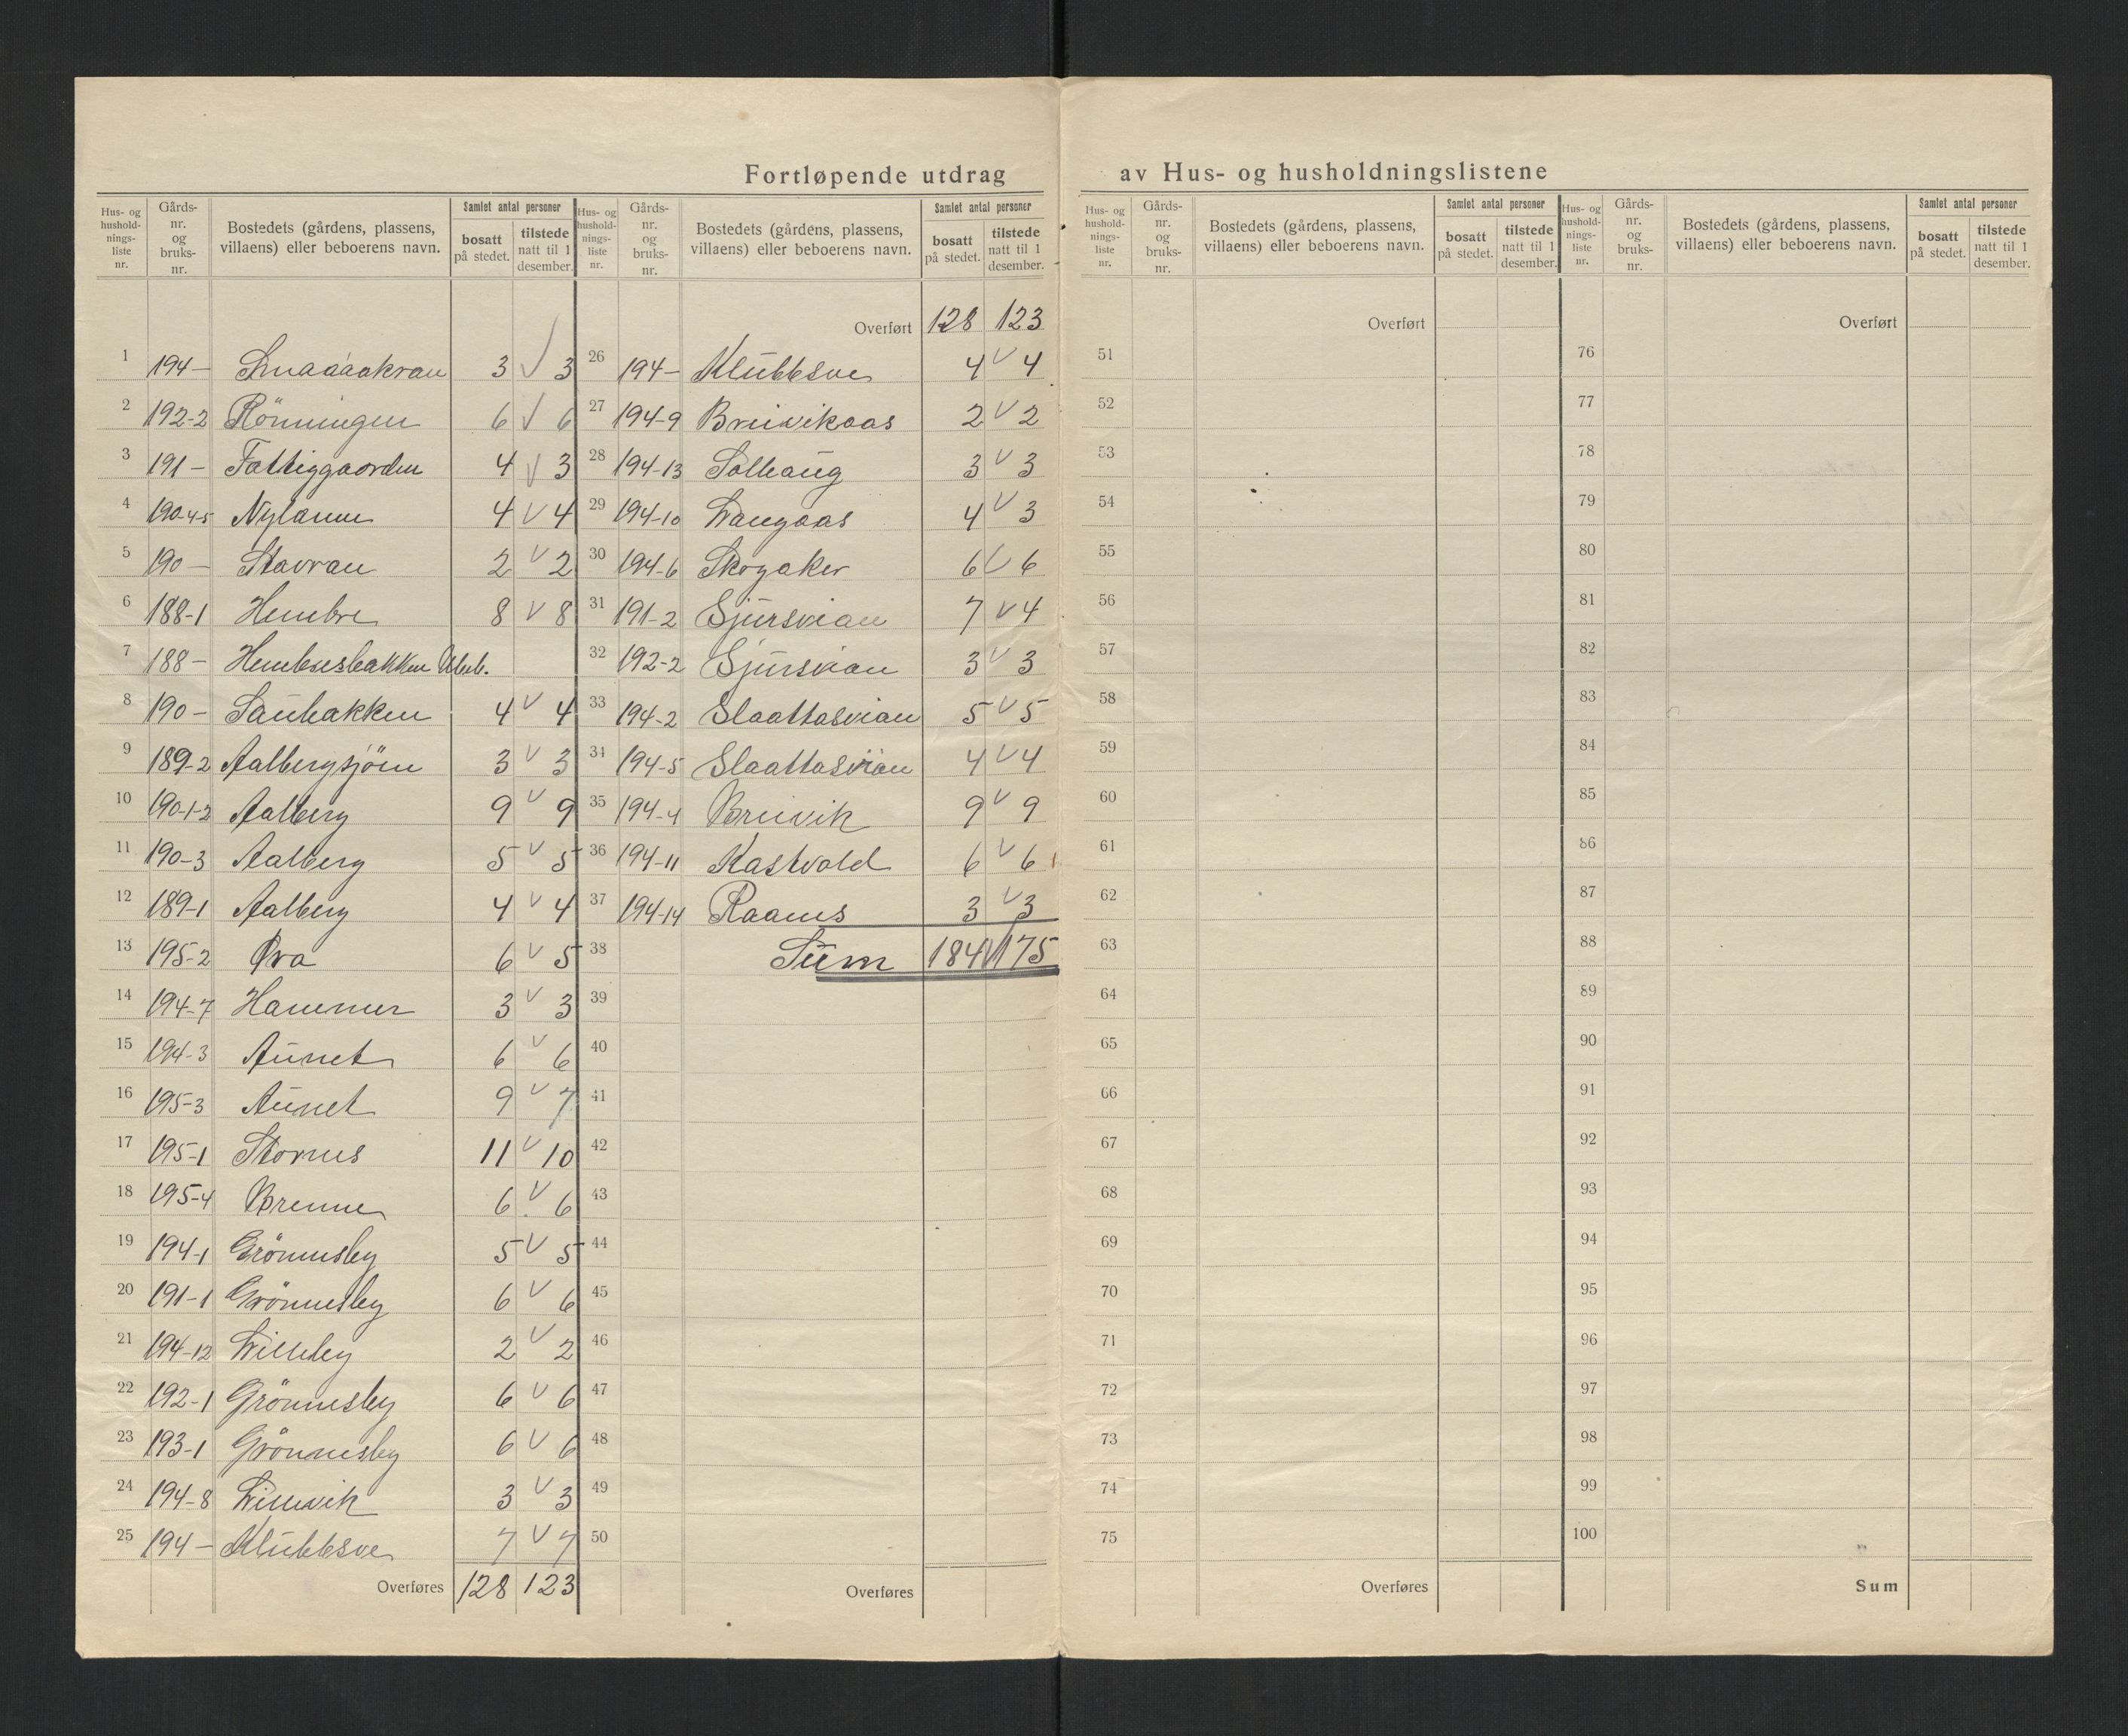 Fortløpende utdrag av Hus- og husholdningslistene
Hus- og hushold- nings- liste nr. | Gårds- nr. og bruks- nr. | Bostedets (gårdens, plassens, villaens) eller beboerens navn. | Samlet antal personer | bosatt på stedet. | tilstede natt til 1 desember.
1 194- Smaaaakran 3 V 3
2 192-2 Rönningen 6 V 6
3 191- Fattiggaarden 4 V 3
4 190-4-5 Nylænn 4 V 4
5 190- Stavran 2 V 2
6 188-1 Hembre 8 V 8
7 188- Hembresbakken Ubeb.
8 190- Saubakken 4 V 4
9 189-2 Aalbergsjöen 3 V 3
10 190-1-2 Aalberg 9 V 9
11 190-3 Aalberg 5 V 5
12 189-1 Aalberg 4 V 4
13 195-2 Øra 6 V 5
14 194-7 Hammer 3 V 3
15 194-3 Aunet 6 V 6
16 195-3 Aunet 9 V 7
17 195-1 Stornes 11 V 10
18 195-4 Brenne 6 V 6
19 194-1 Grönnesby 5 V 5
20 191-1 Grönnesby 6 V 6
21 194-12 Lilleby 2 V 2
22 192-1 Grönnesby 6 V 6
23 193-1 Grönnesby 6 V 6
24 194-8 Lillevik 3 V 3
25 194- Klubbsve 7 V 7
Overføres 128 123
Hus- og hushold- nings- liste nr. | Gårds- nr. og bruks- nr. | Bostedets (gårdens, plassens, villaens) eller beboerens navn. | Samlet antal personer | bosatt på stedet. | tilstede natt til 1 desember.
Overført 128 123
26 194- Klubbsve 4 V 4
27 194-9 Breivikaas 2 V 2
28 194-13 Solhaug 3 V 3
29 194-10 Langaas 4 V 3
30 194-6 Skogaker 6 V 6
31 191-2 Sjursvian 7 V 4
32 192-2 Sjursvian 3 V 3
33 194-2 Slaattasvian 5 V 5
34 194-5 Slaattasvian 4 V 4
35 194-4 Breivik 9 V 9
36 194-11 Kastvold 6 V 6
37 194-14 Raanes 3 V 3
38 Sum 184 V 175
39
40
41
42
43
44
45
46
47
48
49
50
Overføres
Hus- og hushold- nings- liste nr. | Gårds- nr. og bruks- nr. | Bostedets (gårdens, plassens, villaens) eller beboerens navn. | Samlet antal personer | bosatt på stedet. | tilstede natt til 1 desember.
Overført
51
52
53
54
55
56
57
58
59
60
61
62
63
64
65
66
67
68
69
70
71
72
73
74
75
Overføres
Hus- og hushold- nings- liste nr. | Gårds- nr. og bruks- nr. | Bostedets (gårdens, plassens, villaens) eller beboerens navn. | Samlet antal personer | bosatt på stedet. | tilstede natt til 1 desember.
Overført
76
77
78
79
80
81
82
83
84
85
86
87
88
89
90
91
92
93
94
95
96
97
98
99
100
Sum